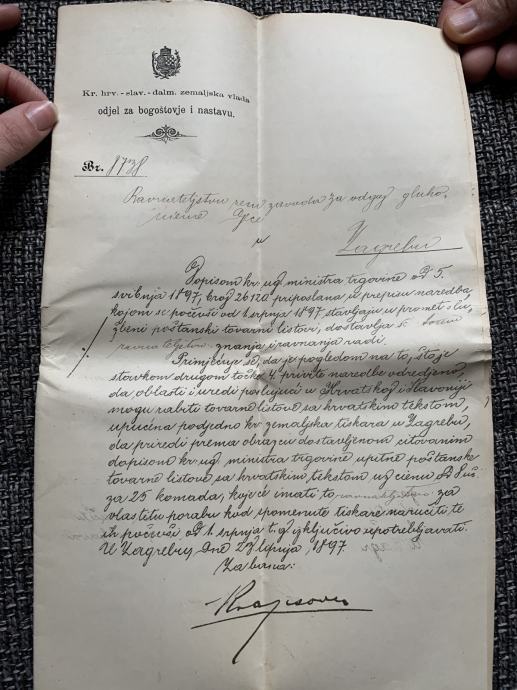 Kr. hrv.-slav.-dalm. zemaljska vlada
odjel za bogoštovje i nastavu.
Br. 8738
Ravnateljstvu zem zavoda za odgoj gluho-
nieme djece
u
Zagrebu
Dopisom kr. ug. ministra trgovine od 5.
svibnja 1897, broj 26120 priposlana u prepisu naredba,
kojom se počevši od 1 srpnja 1897 stavljaju u promet slu-
žbeni poštanski tovarni listovi, dostavlja se
ravnateljstvu znanja i ravnanja radi.
Primjećuje se, da je pogledom na to, što je
stavkom drugom točke 4. privite naredbe odredjeno,
da oblasti i uredi poslujući u Hrvatskoj i Slavoniji
mogu rabiti tovarne listove sa hrvatskim tekstom,
upućena podjedno kr. zemaljska tiskara u Zagrebu,
da priredi prema obrazcu dostavljenom citovanim
dopisom kr. ug. ministra trgovine upitne poštanske
tovarne listove sa hrvatskim tekstom uz cienu od 8 nč.
za 25 komada, koje će imati to ravnateljstvo za
vlastitu porabu kod spomenute tiskare naručiti te
ih počevši od 1 srpnja t. g. izključivo upotrebljavati.
U Zagrebu, dne 23 lipnja 1897.
Za bana: